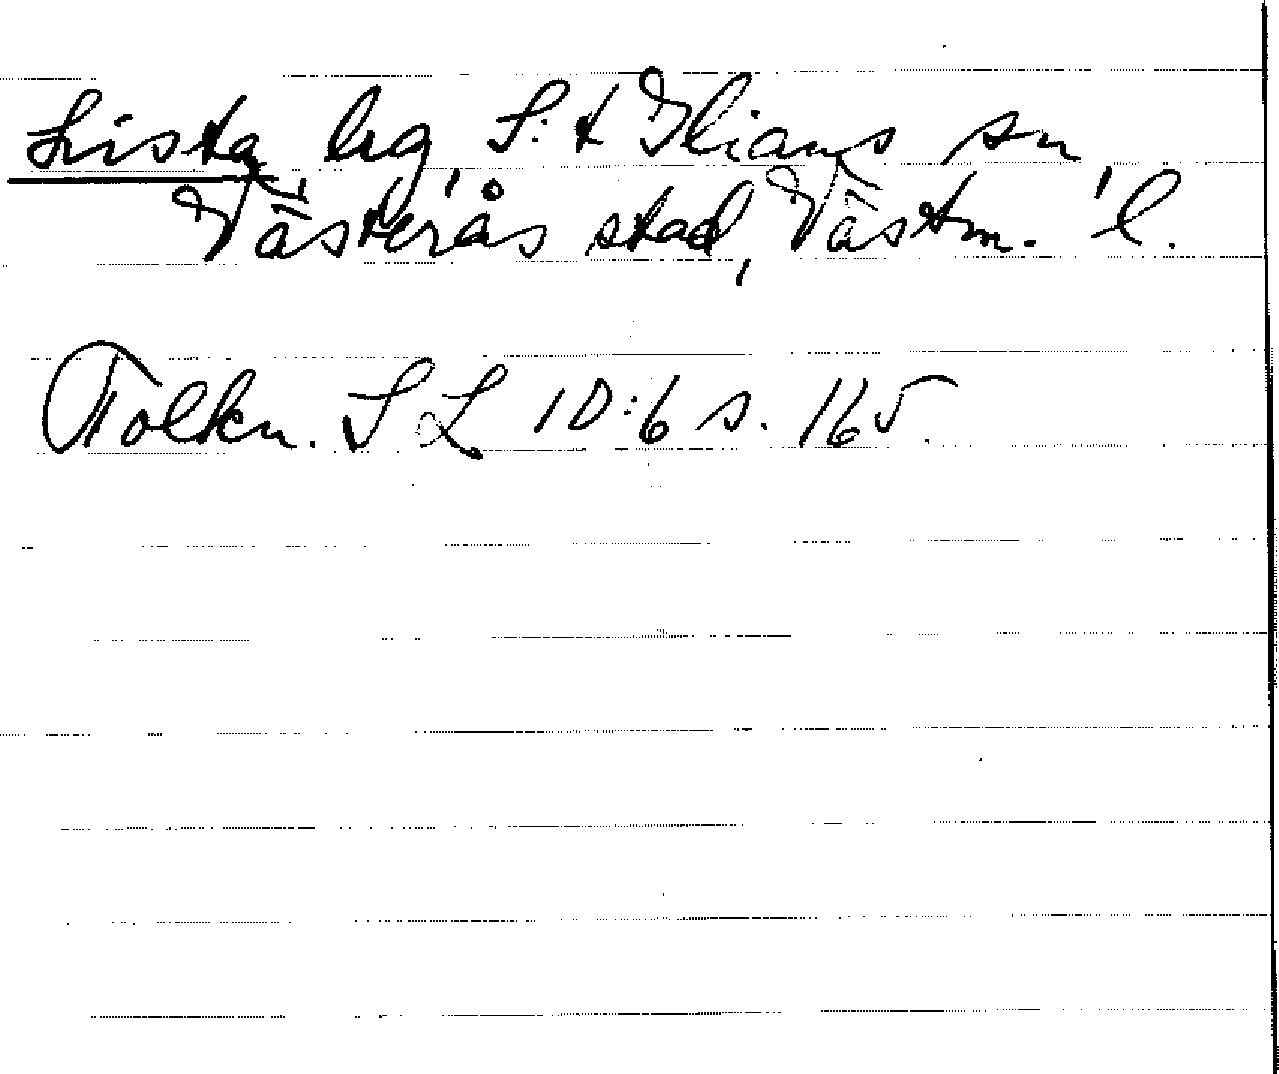 Lista hg, S:t Ilians sn,
Västerås stad, Västm. l.
Tolkn. SL 10:6 s. 165.